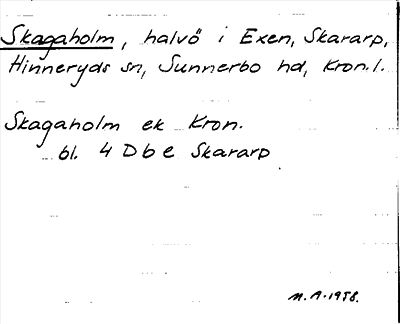 Skagaholm, halvö i Exen, Skararp,
Hinneryds sn, Sunnerbo hd, Kron.l.
Skagaholm ek Kron.
bl. 4 D b e Skararp
M.A. 1958.